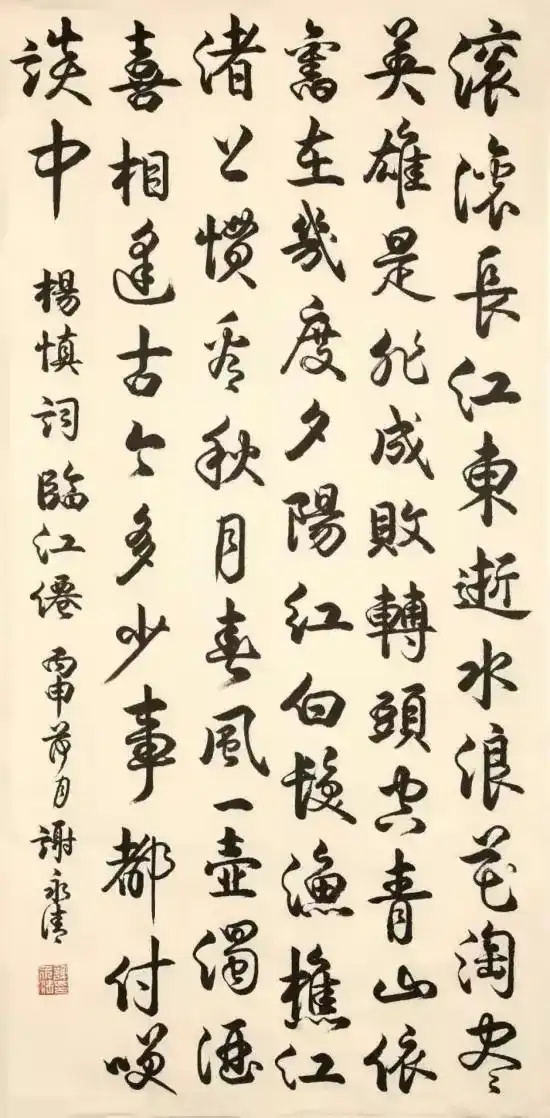 滚滚長江東逝水浪花淘尽
英雄是非成敗轉頭空青山依
舊在幾度夕陽紅白髮漁樵江
渚上慣看秋月春風一壺濁酒
喜相逢古今多少事都付咲
談中 楊慎詞臨江僊 丙申月 謝永清